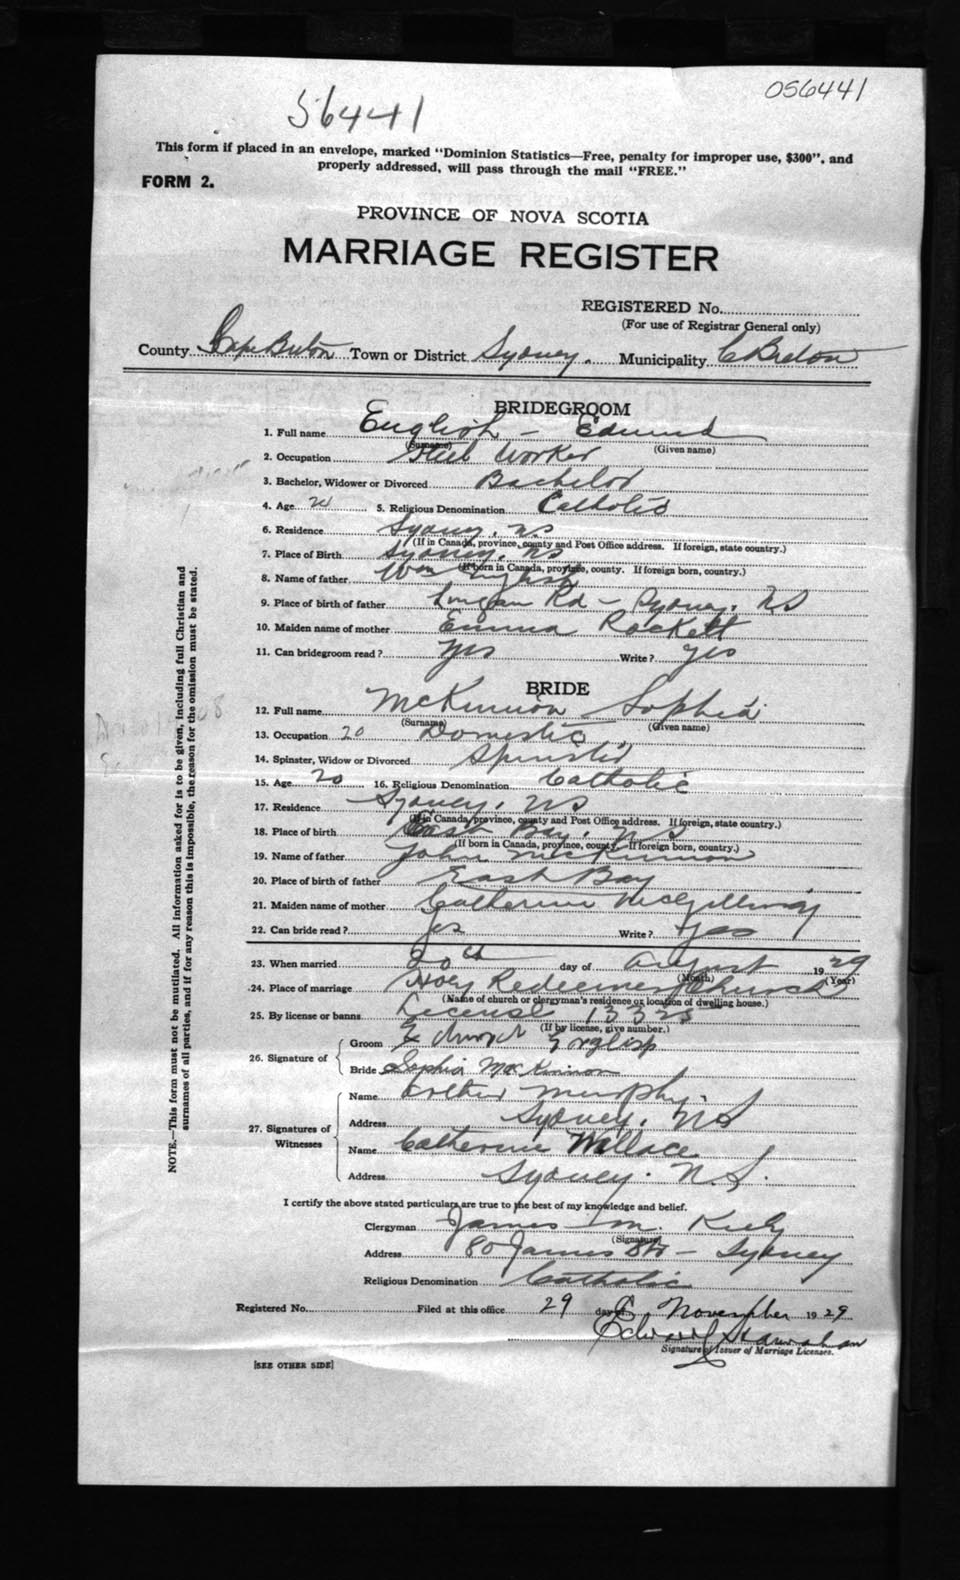 056441
56441
This form if placed in an envelope, marked "Dominion Statistics—Free, penalty for improper use, $300", and
properly addressed, will pass through the mail "FREE."
FORM 2.
PROVINCE OF NOVA SCOTIA
MARRIAGE REGISTER
REGISTERED No.
(For use of Registrar General only)
County Cape Breton Town or District Sydney. Municipality C Breton
BRIDEGROOM
1. Full name English - Edmund
(Surname) (Given name)
2. Occupation Steel Worker
3. Bachelor, Widower or Divorced Bachelor
4. Age 21 5. Religious Denomination Catholic
6. Residence Sydney, NS
(If in Canada, province, county and Post Office address. If foreign, state country.)
7. Place of Birth Sydney, NS
(If born in Canada, province, county. If foreign born, country.)
8. Name of father Wm English
9. Place of birth of father Lingan Rd - Sydney, NS
10. Maiden name of mother Emma Rockett
11. Can bridegroom read? Yes Write? Yes
BRIDE
12. Full name McKinnon Sophia
(Surname) (Given name)
13. Occupation 20 Domestic
14. Spinster, Widow or Divorced Spinster
15. Age 20 16. Religious Denomination Catholic
17. Residence Sydney, NS
(If in Canada, province, county and Post Office address. If foreign, state country.)
18. Place of birth East Bay, NS
(If born in Canada, province, county. If foreign born, country.)
19. Name of father John McKinnon
20. Place of birth of father East Bay
21. Maiden name of mother Catherine McGillivray
22. Can bride read? Yes Write? Yes
23. When married 20th day of August 1929
(Month) (Year)
24. Place of marriage Holy Redeemer Church
(Name of church or clergyman's residence or location of dwelling house.)
25. By license or banns License 13325
(If by license, give number.)
26. Signature of
Groom Edmund English
Bride Sophia McKinnon
27. Signatures of Witnesses
Name Arthur Murphy.
Address Sydney, NS
Name Catherine Wallace
Address Sydney. N.S.
I certify the above stated particulars are true to the best of my knowledge and belief.
Clergyman James M. Kiely
(Signature)
Address 80 James St - Sydney
Religious Denomination Catholic
Registered No. Filed at this office 29 day of November 1929
Edward
Signature of Issuer of Marriage Licenses.
[SEE OTHER SIDE]
NOTE.—This form must not be mutilated. All information asked for is to be given, including full Christian and
surnames of all parties, and if for any reason this is impossible, the reason for the omission must be stated.